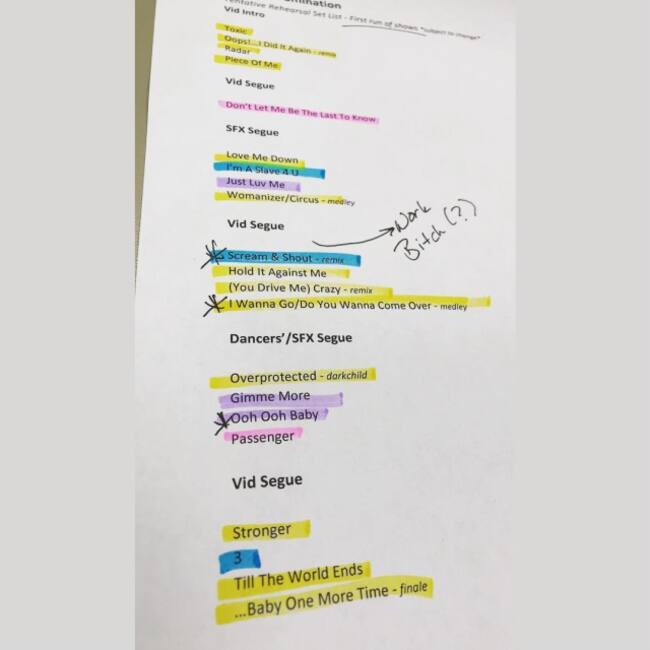 Tentative Rehearsal Set List - First run of shows *subject to change*
Vid Intro
Toxic
Oops!...I Did It Again - remix
Radar
Piece Of Me
Vid Segue
Don't Let Me Be The Last To Know
SFX Segue
Love Me Down
I'm A Slave 4 U
Just Luv Me
Womanizer/Circus - medley
Vid Segue
Work
Bitch (?)
Scream & Shout - remix
Hold It Against Me
(You Drive Me) Crazy - remix
I Wanna Go/Do You Wanna Come Over - medley
Dancers'/SFX Segue
Overprotected - darkchild
Gimme More
Ooh Ooh Baby
Passenger
Vid Segue
Stronger
3
Till The World Ends
...Baby One More Time - finale